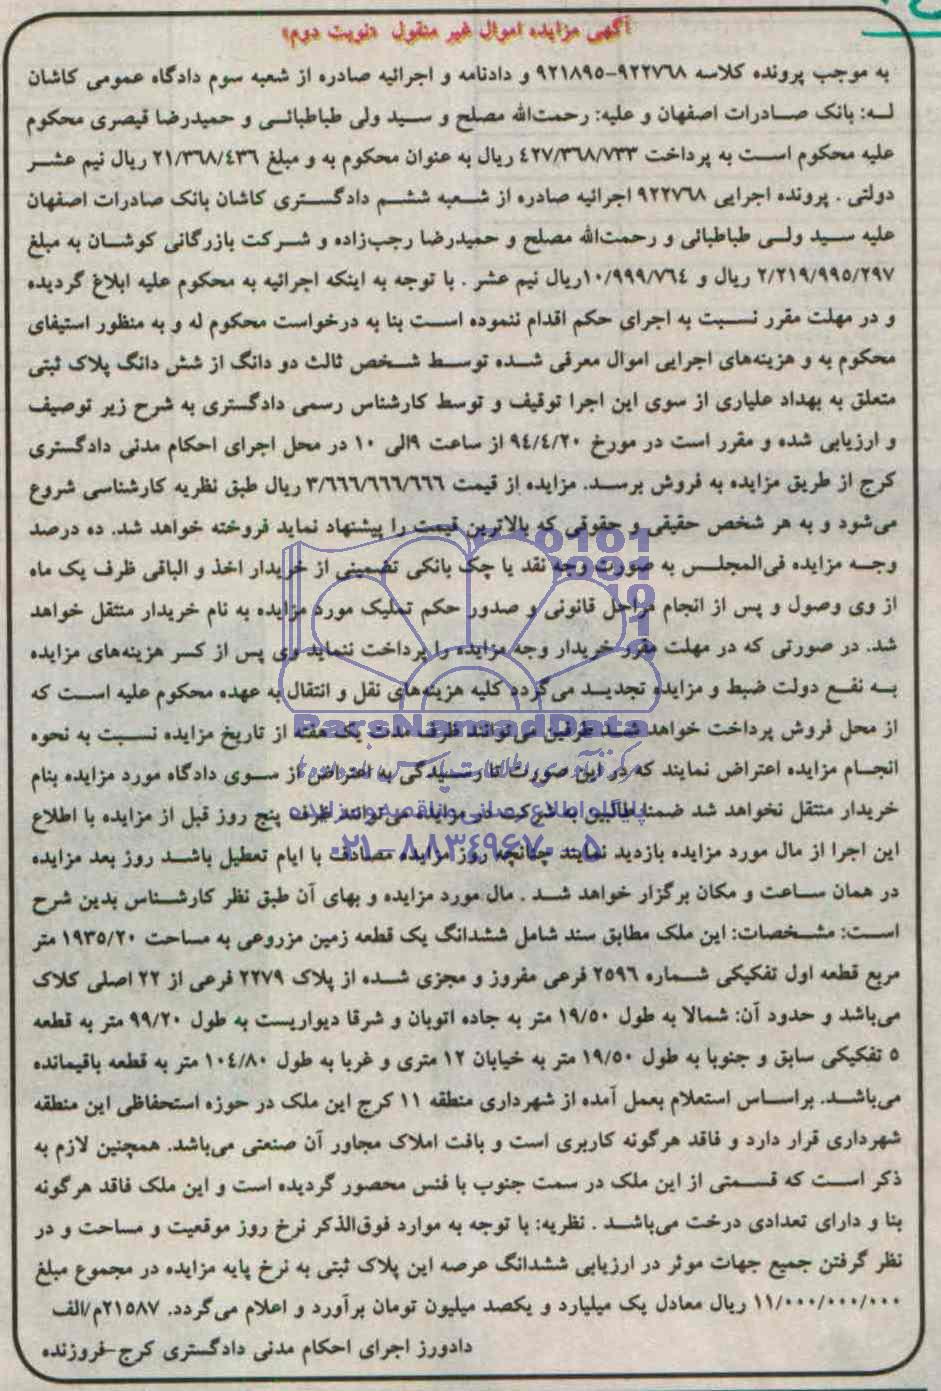 آگهی مزایده اموال غیر منقول «نوبت دوم»
به موجب پرونده کلاسه ۹۲۲۷۶۸-۹۲۱۸۹۵ و دادنامه و اجرائیه صادره از شعبه سوم دادگاه عمومی کاشان
لـه: بانک صادرات اصفهان و علیه: رحمت‌الله مصلح و سید ولی طباطبائی و حمیدرضا قیصری محکوم
علیه محکوم است به پرداخت ۴۲۷/۳۶۸/۷۳۳ ریال به عنوان محکوم به و مبلغ ۲۱/۳۶۸/۴۳۶ ریال نیم عشر
دولتی . پرونده اجرایی ۹۲۲۷۶۸ اجرائیه صادره از شعبه ششم دادگستری کاشان بانک صادرات اصفهان
علیه سید ولی طباطبائی و رحمت‌الله مصلح و حمیدرضا رجب‌زاده و شرکت بازرگانی کوشان به مبلغ
۲/۲۱۹/۹۹۵/۲۹۷ ریال و ۱۰/۹۹۹/۷۶۴ریال نیم عشر . با توجه به اینکه اجرائیه به محکوم علیه ابلاغ گردیده
و در مهلت مقرر نسبت به اجرای حکم اقدام ننموده است بنا به درخواست محکوم له و به منظور استیفای
محکوم به و هزینه‌های اجرایی اموال معرفی شده توسط شخص ثالث دو دانگ از شش دانگ پلاک ثبتی
متعلق به بهداد علیاری از سوی این اجرا توقیف و توسط کارشناس رسمی دادگستری به شرح زیر توصیف
و ارزیابی شده و مقرر است در مورخ ۹۴/۴/۲۰ از ساعت ۹الی ۱۰ در محل اجرای احکام مدنی دادگستری
کرج از طریق مزایده به فروش برسد. مزایده از قیمت ۳/۶۶۶/۶۶۶/۶۶۶ ریال طبق نظریه کارشناسی شروع
می‌شود و به هر شخص حقیقی و حقوقی که بالاترین قیمت را پیشنهاد نماید فروخته خواهد شد. ده درصد
وجه مزایده فی‌المجلس به صورت وجه نقد یا چک بانکی تضمینی از خریدار اخذ و الباقی ظرف یک ماه
از وی وصول و پس از انجام مراحل قانونی و صدور حکم تملیک مورد مزایده به نام خریدار منتقل خواهد
شد. در صورتی که در مهلت مقرر خریدار وجه مزایده را پرداخت ننماید وی پس از کسر هزینه‌های مزایده
به نفع دولت ضبط و مزایده تجدید می‌گردد کلیه هزینه‌های نقل و انتقال به عهده محکوم علیه است که
از محل فروش پرداخت خواهد شد طرفین می‌توانند ظرف مدت یک هفته از تاریخ مزایده نسبت به نحوه
انجام مزایده اعتراض نمایند که در این صورت تا رسیدگی به اعتراض از سوی دادگاه مورد مزایده بنام
خریدار منتقل نخواهد شد ضمنا طالبین به شرکت در مزایده می‌توانند ظرف پنج روز قبل از مزایده با اطلاع
این اجرا از مال مورد مزایده بازدید نمایند چنانچه روز مزایده مصادف با ایام تعطیل باشد روز بعد مزایده
در همان ساعت و مکان برگزار خواهد شد . مال مورد مزایده و بهای آن طبق نظر کارشناس بدین شرح
است: مشخصات: این ملک مطابق سند شامل ششدانگ یک قطعه زمین مزروعی به مساحت ۱۹۳۵/۲۰ متر
مربع قطعه اول تفکیکی شماره ۲۵۹۶ فرعی مفروز و مجزی شده از پلاک ۲۲۷۹ فرعی از ۲۲ اصلی کلاک
می‌باشد و حدود آن: شمالا به طول ۱۹/۵۰ متر به جاده اتوبان و شرقا دیواریست به طول ۹۹/۲۰ متر به قطعه
۵ تفکیکی سابق و جنوبا به طول ۱۹/۵۰ متر به خیابان ۱۲ متری و غربا به طول ۱۰۴/۸۰ متر به قطعه باقیمانده
می‌باشد. براساس استعلام بعمل آمده از شهرداری منطقه ۱۱ کرج این ملک در حوزه استحفاظی این منطقه
شهرداری قرار دارد و فاقد هرگونه کاربری است و بافت املاک مجاور آن صنعتی می‌باشد. همچنین لازم به
ذکر است که قسمتی از این ملک در سمت جنوب با فنس محصور گردیده است و این ملک فاقد هرگونه
بنا و دارای تعدادی درخت می‌باشد . نظریه: با توجه به موارد فوق‌الذکر نرخ روز موقعیت و مساحت و در
نظر گرفتن جمیع جهات موثر در ارزیابی ششدانگ عرصه این پلاک ثبتی به نرخ پایه مزایده در مجموع مبلغ
۱۱/۰۰۰/۰۰۰/۰۰۰ ریال معادل یک میلیارد و یکصد میلیون تومان برآورد و اعلام می‌گردد. ۲۱۵۸۷م/الف
دادورز اجرای احکام مدنی دادگستری کرج-فروزنده
ParsNamadData
۰۲۱-۸۸۳۴۹۶۷۰-۵